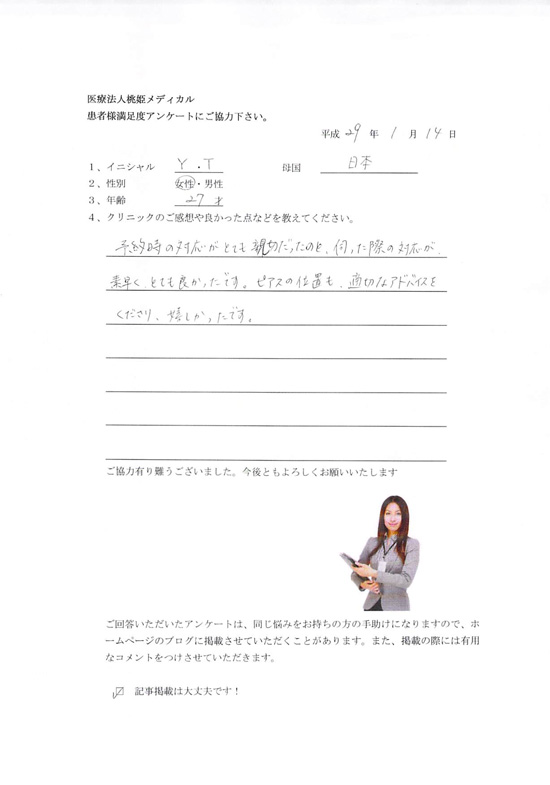 医療法人桃姫メディカル
患者様満足度アンケートにご協力下さい。
平成 29 年 1 月 14 日
1、イニシャル Y.T 母国 日本
2、性別 女性・男性
3、年齢 27才
4、クリニックのご感想や良かった点などを教えてください。
予約時の対応がとても親切だったのと、伺った際の対応が、
素早く、とても良かったです。ピアスの位置も、適切なアドバイスを
くださり、嬉しかったです。
ご協力有り難うございました。今後ともよろしくお願いいたします
ご回答いただいたアンケートは、同じ悩みをお持ちの方の手助けになりますので、ホ
ームページのブログに掲載させていただくことがあります。また、掲載の際には有用
なコメントをつけさせていただきます。
☑ 記事掲載は大丈夫です！